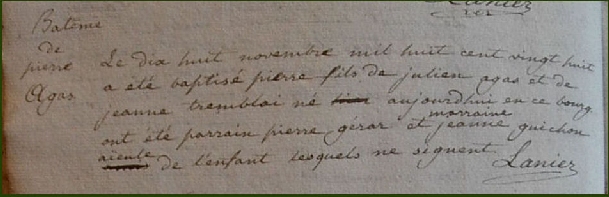 Lanier
Batême
de
pierre
Agas
Le dix huit novembre mil huit cent vingt huit
a été baptisé pierre fils de julien agas et de
jeanne tremblai né aujourdhui en ce bourg.
marraine
ont été parrain pierre gérar et jeanne guichon
aieule
de l'enfant lesquels ne signent
Lanier